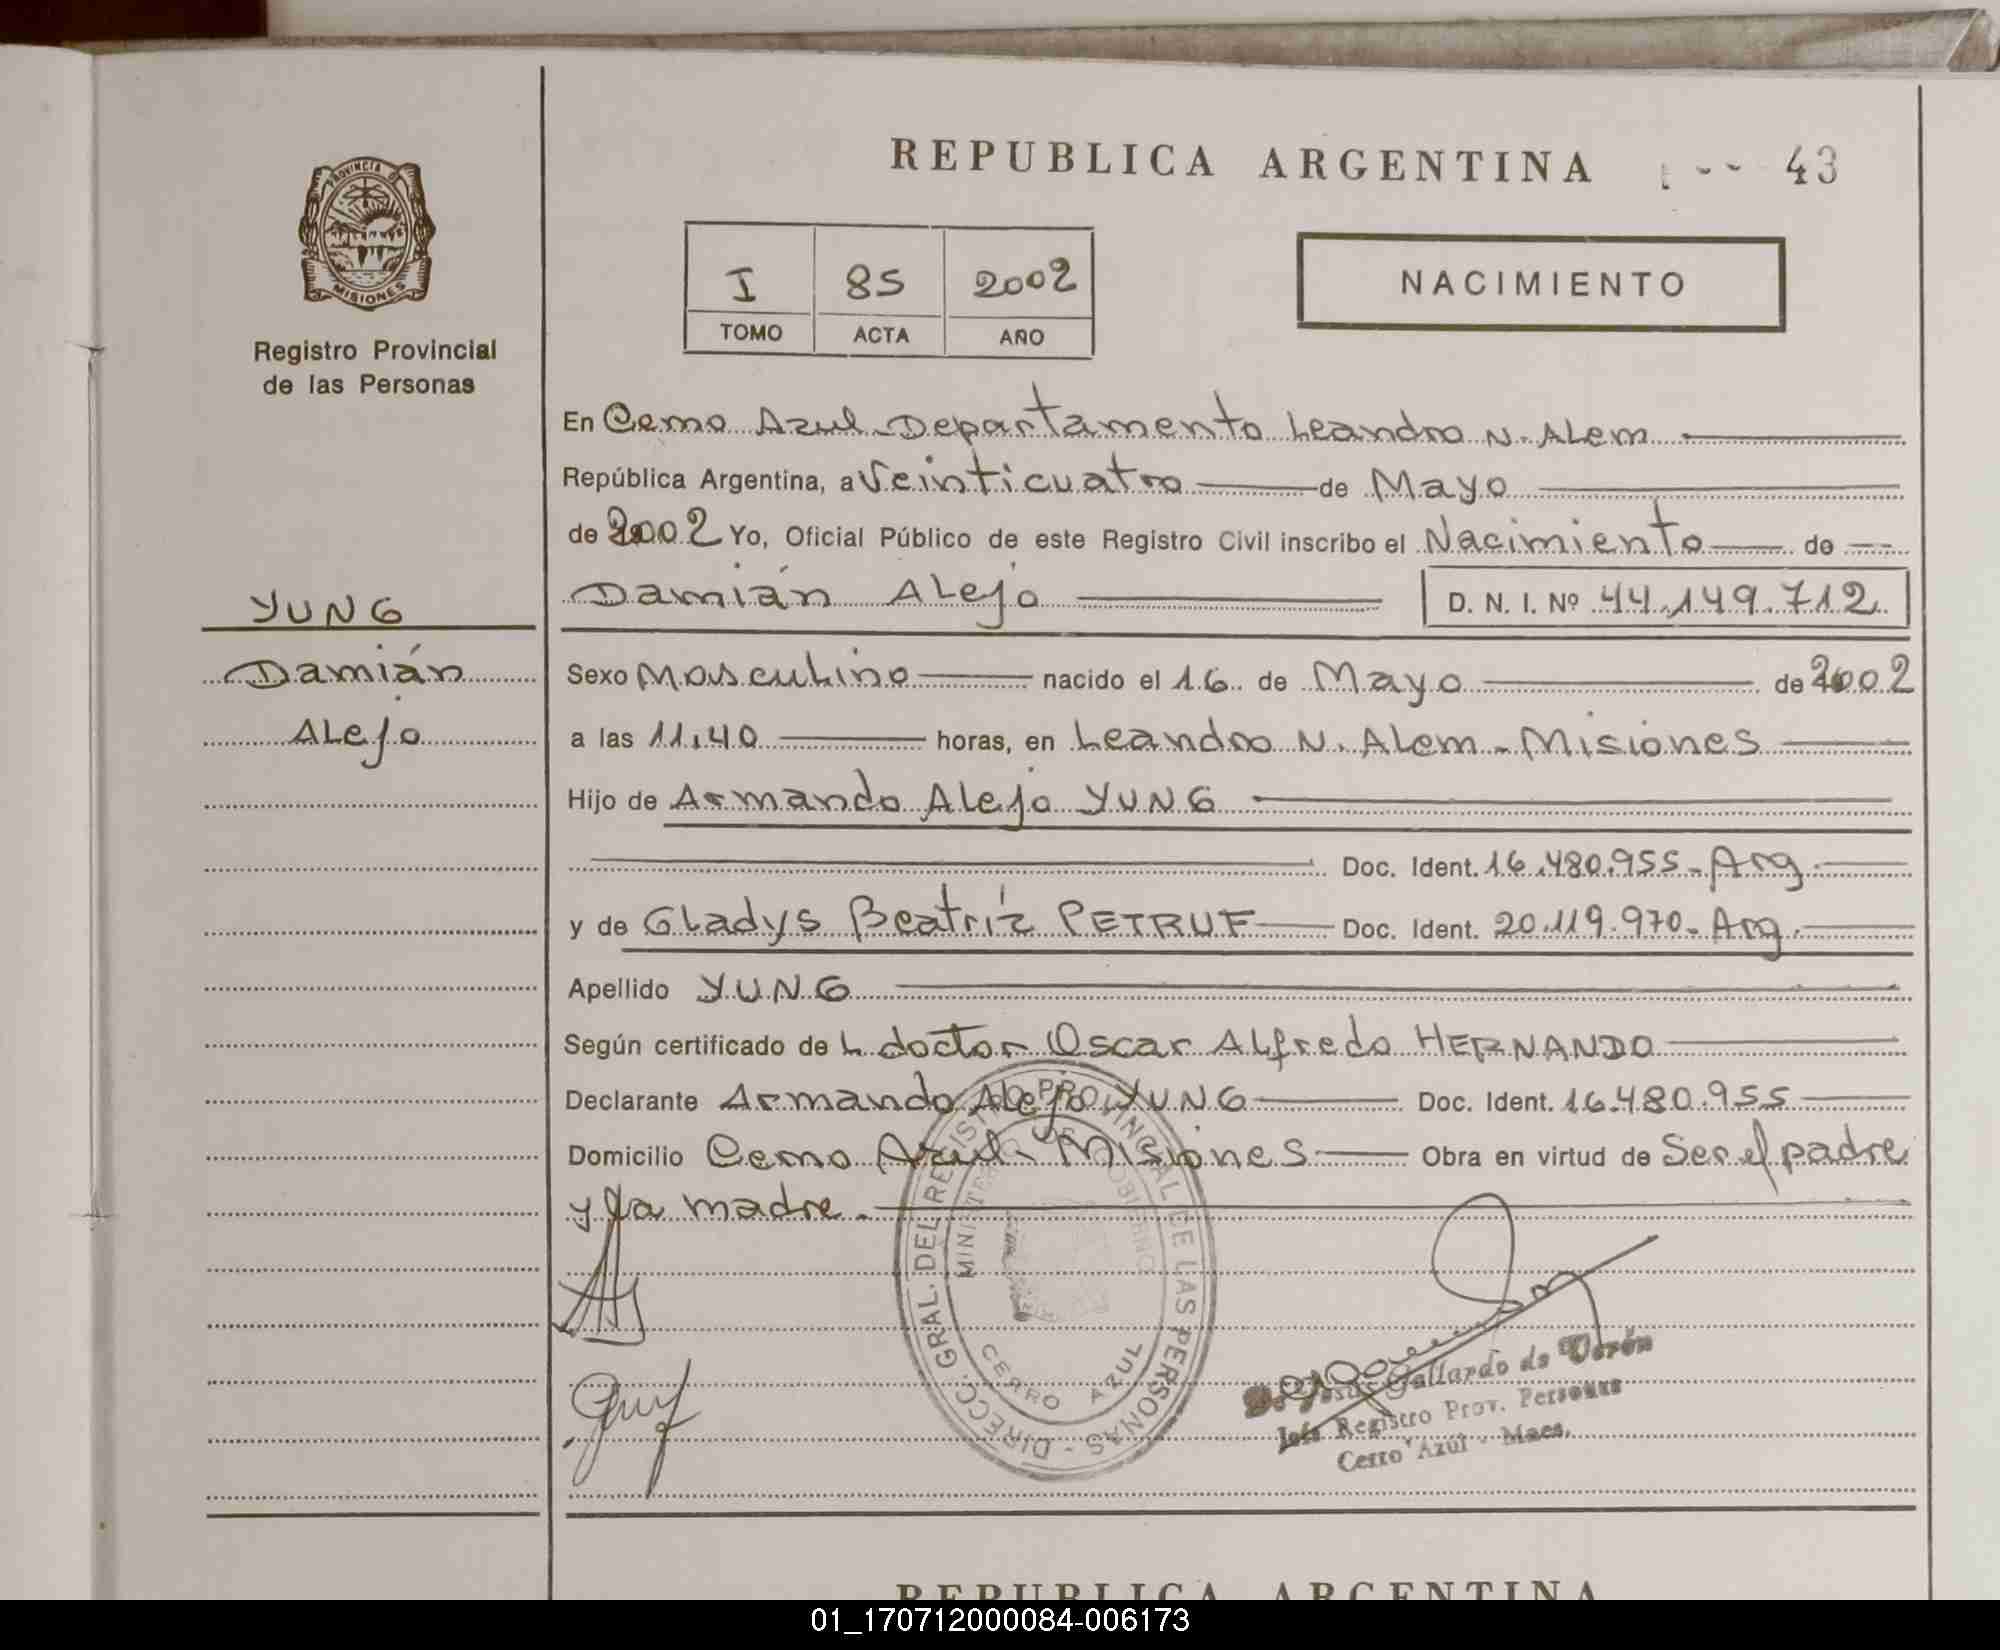 REPUBLICA ARGENTINA 43
PROVINCIA D
MISIONES
Registro Provincial
de las Personas
I 85 2002
TOMO ACTA AÑO
NACIMIENTO
En Cerro Azul - Departamento Leandro N. Alem
República Argentina, a Veinticuatro de Mayo
de 2002 Yo, Oficial Público de este Registro Civil inscribo el Nacimiento de
Damián Alejo D. N. I. Nº 44.149.712
YUNG
Damián
Alejo
Sexo Masculino nacido el 16 de Mayo de 2002
a las 11,40 horas, en Leandro N. Alem - Misiones
Hijo de Armando Alejo YUNG
Doc. Ident. 16.480.955 - Arg.
y de Gladys Beatríz PETRUF Doc. Ident. 20.119.970 - Arg.
Apellido YUNG
Según certificado de L doctor Oscar Alfredo HERNANDO
Declarante Armando Alejo YUNG Doc. Ident. 16.480.955
Domicilio Cerro Azul - Misiones Obra en virtud de Ser el padre
y la madre.
DIRECC. GRAL. DEL REGISTRO PROVINCIAL DE LAS PERSONAS -
MINISTERIO DE GOBIERNO
CERRO AZUL
Jesús Gallardo de Verón
Jefe Registro Prov. Personas
Cerro Azul - Mnes.
REPUBLICA ARGENTINA
01_170712000084-006173